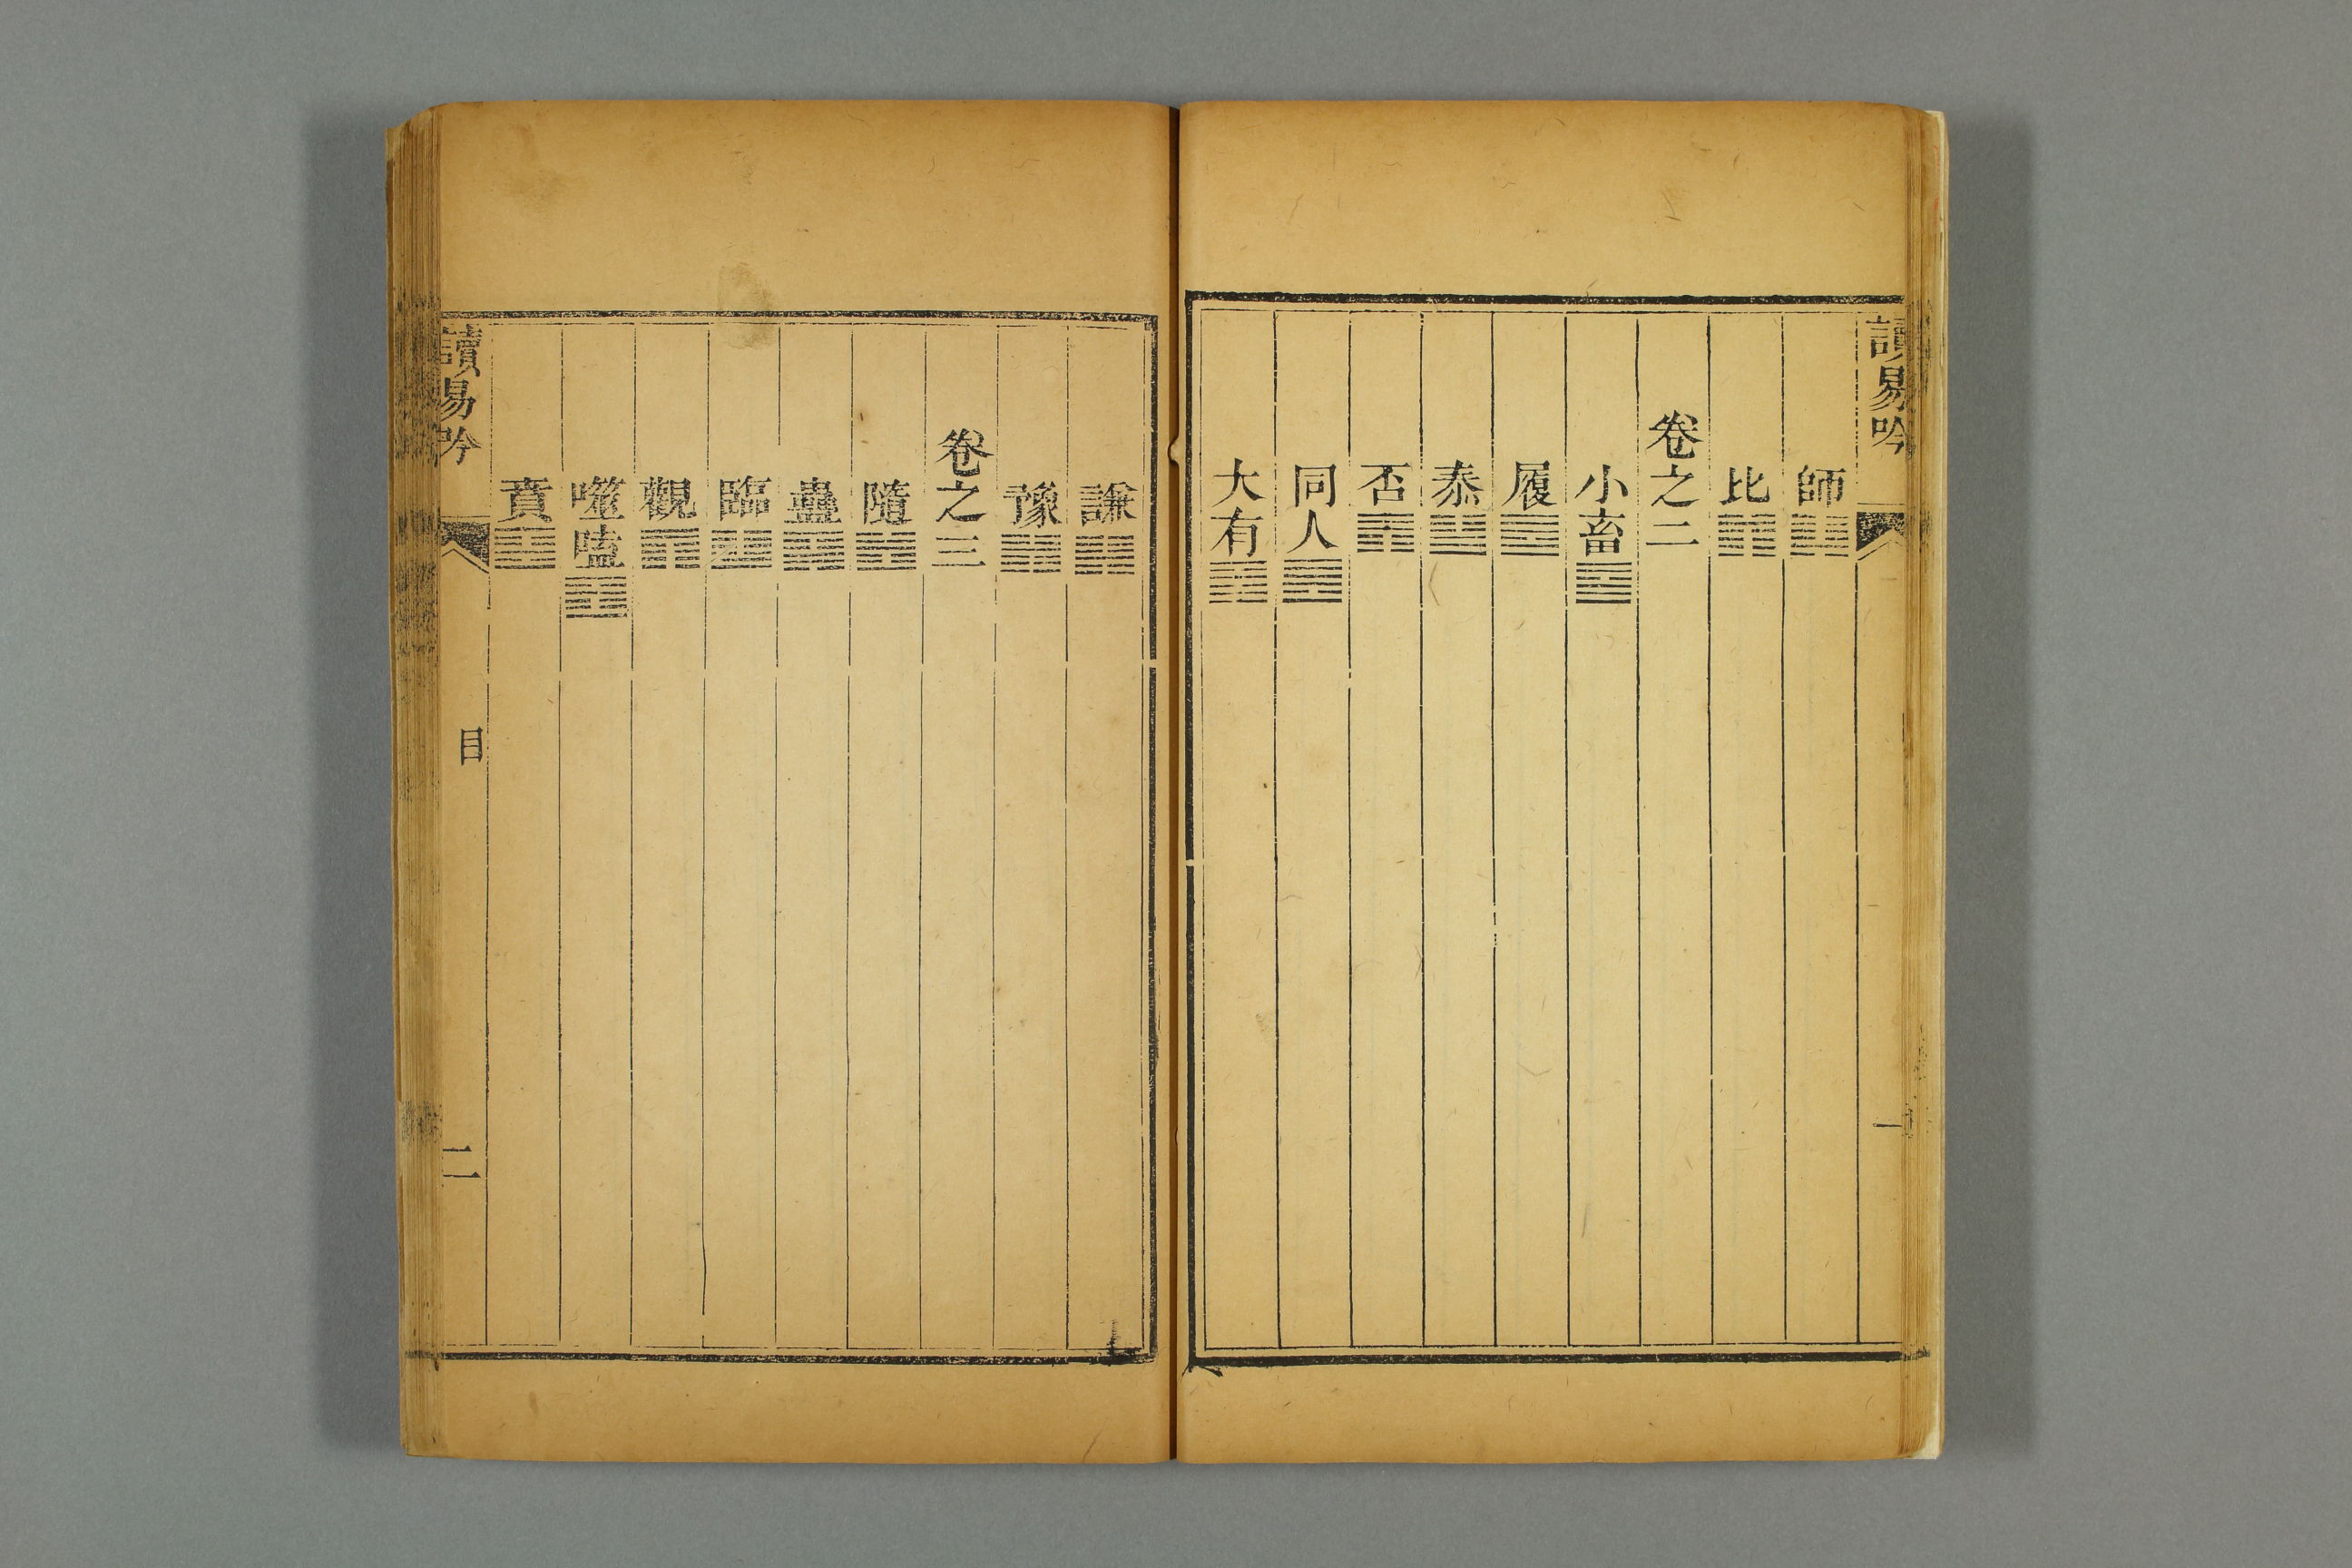 讀易吟
一
師䷆
比䷇
卷之二
小畜䷈
履䷉
泰䷊
否䷋
同人䷌
大有䷍
謙䷎
豫䷏
卷之三
隨䷐
蠱䷑
臨䷒
觀䷓
噬嗑䷔
賁䷕
讀易吟
目
二